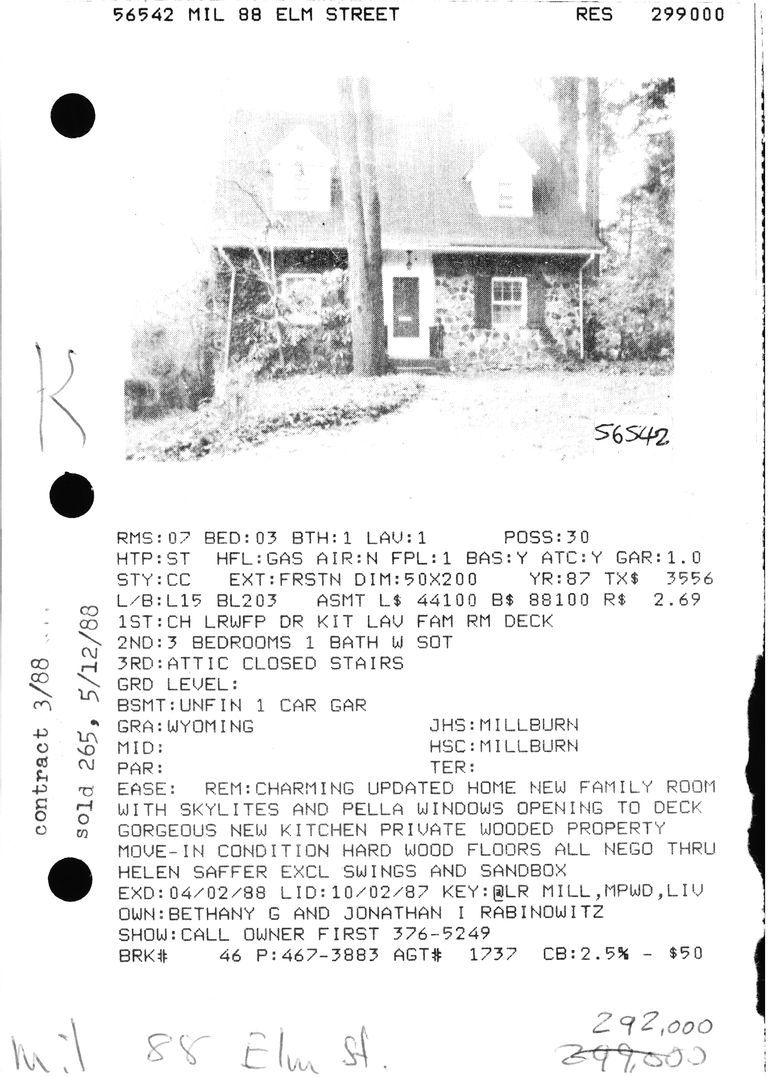 56542 MIL 88 ELM STREET RES 299000
56542
K
RMS:07 BED:03 BTH:1 LAV:1 POSS:30
HTP:ST HFL:GAS AIR:N FPL:1 BAS:Y ATC:Y GAR:1.0
STY:CC EXT:FRSTN DIM:50X200 YR:87 TX$ 3556
L/B:L15 BL203 ASMT L$ 44100 B$ 88100 R$ 2.69
1ST:CH LRWFP DR KIT LAV FAM RM DECK
2ND:3 BEDROOMS 1 BATH W SOT
3RD:ATTIC CLOSED STAIRS
GRD LEVEL:
BSMT:UNFIN 1 CAR GAR
GRA:WYOMING JHS:MILLBURN
MID: HSC:MILLBURN
PAR: TER:
EASE: REM:CHARMING UPDATED HOME NEW FAMILY ROOM
WITH SKYLITES AND PELLA WINDOWS OPENING TO DECK
GORGEOUS NEW KITCHEN PRIVATE WOODED PROPERTY
MOVE-IN CONDITION HARD WOOD FLOORS ALL NEGO THRU
HELEN SAFFER EXCL SWINGS AND SANDBOX
EXD:04/02/88 LID:10/02/87 KEY:@LR MILL,MPWD,LIV
OWN:BETHANY G AND JONATHAN I RABINOWITZ
SHOW:CALL OWNER FIRST 376-5249
BRK# 46 P:467-3883 AGT# 1737 CB:2.5% - $50
contract 3/88 ...
sold 265, 5/12/88
292,000
299,000
Mil 88 Elm St.